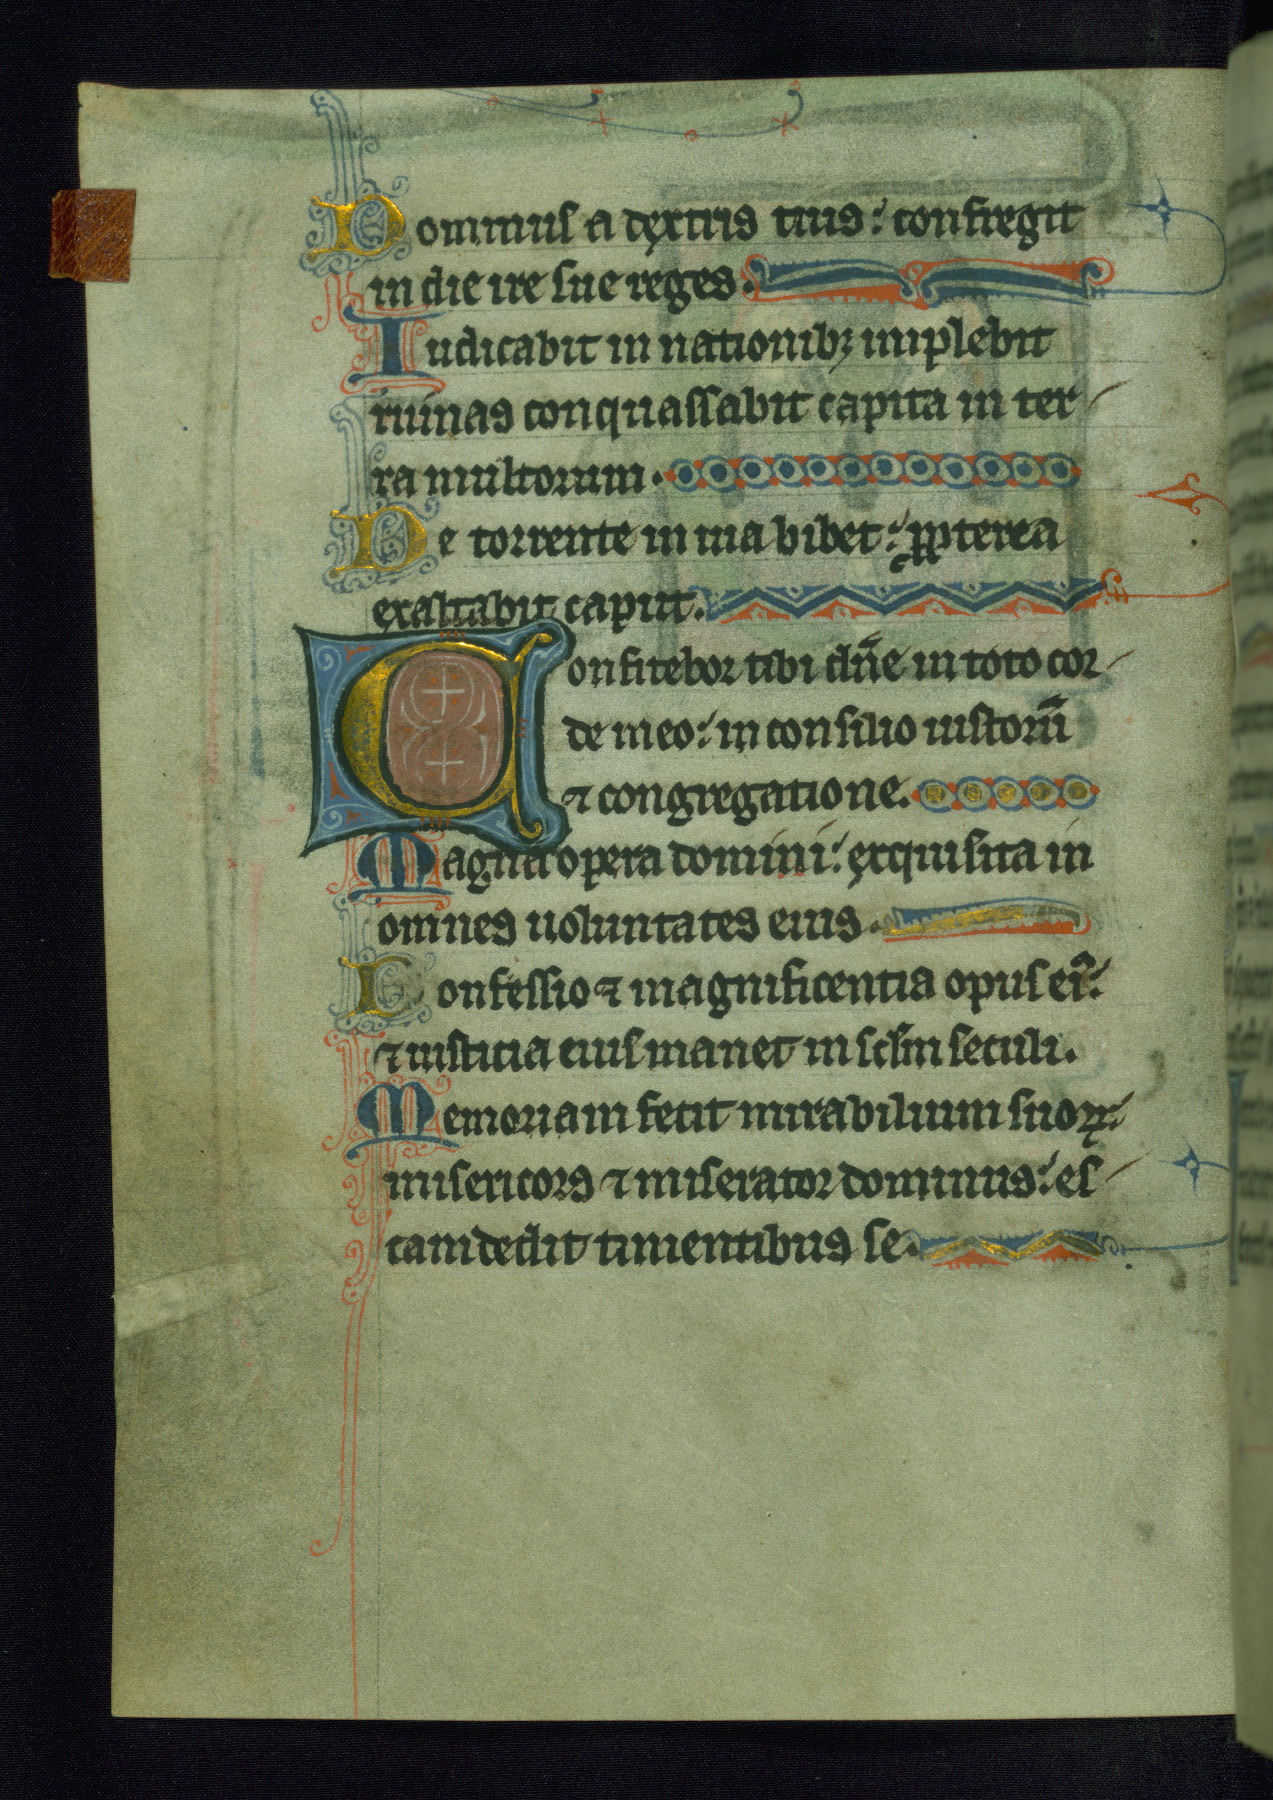 Dominus a dextris tuis: confregit
in die ire sue reges.
Iudicabit in nationibꝫ implebit
ruinas conquassabit capita in ter
ra multorum.
De torrente in uia bibet: ꝓpterea
exaltabit caput.
Confitebor tibi dn̄e in toto cor
de meo: in consilio iustorū
⁊ congregatione.
Magna opera domini: exquisita in
omnes uoluntates eius.
Confessio ⁊ magnificentia opus eiꝰ:
⁊ iusticia eius manet in sclm̄ seculi.
Memoriam fecit mirabilium suoꝝ:
misericors ⁊ miserator dominus: es
cam dedit timentibus se.